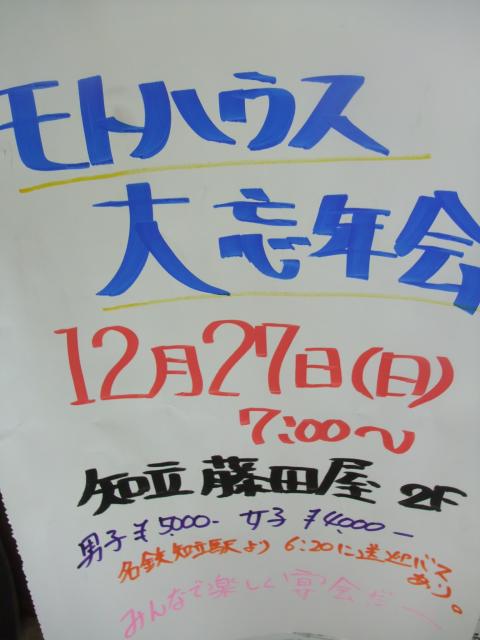 モトハウス
大忘年会
12月27日(日)
7:00〜
知立 藤田屋 2F
男子¥5000- 女子¥4,000-
名鉄知立駅より 6:20に送迎バス
あり。
みんなで楽しく宴会だー